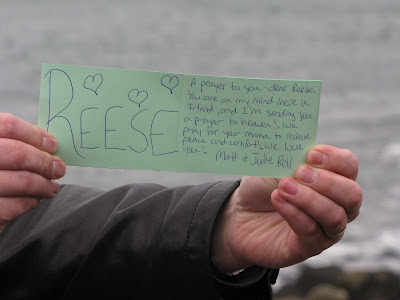 REESE
A prayer to you - dear Reese.
You are on my mind here in
Ireland, and I'm sending you
a prayer to heaven. We
pray for your momma to receive
peace and comfort. We love
you.
Matt & Julie Bell